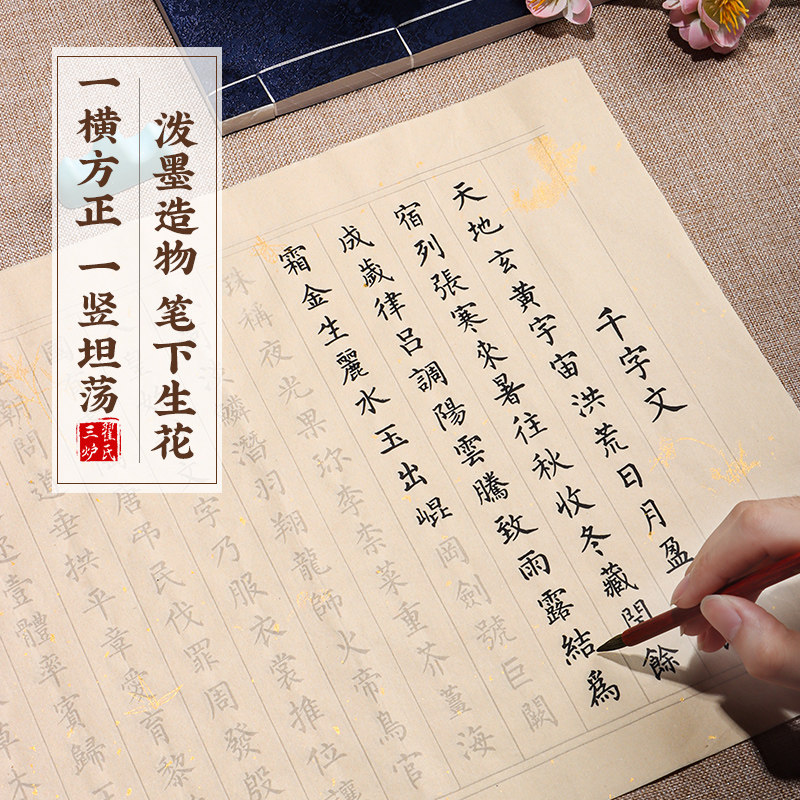 泼墨造物 笔下生花
一横方正 一竖坦荡
瞿氏
三炉
千字文
天地玄黄宇宙洪荒日月盈
宿列張寒來暑往秋收冬藏閏餘
成歲律吕調陽雲騰致雨露結爲
霜金生麗水玉出崐岡劍號巨闕
珠稱夜光果珍李柰菜重芥薑海
鱗潛羽翔龍師火帝鳥官
文字乃服衣裳推位讓
唐弔民伐罪周發殷
朝問道垂拱平章愛育黎
壹體率賓歸
草木